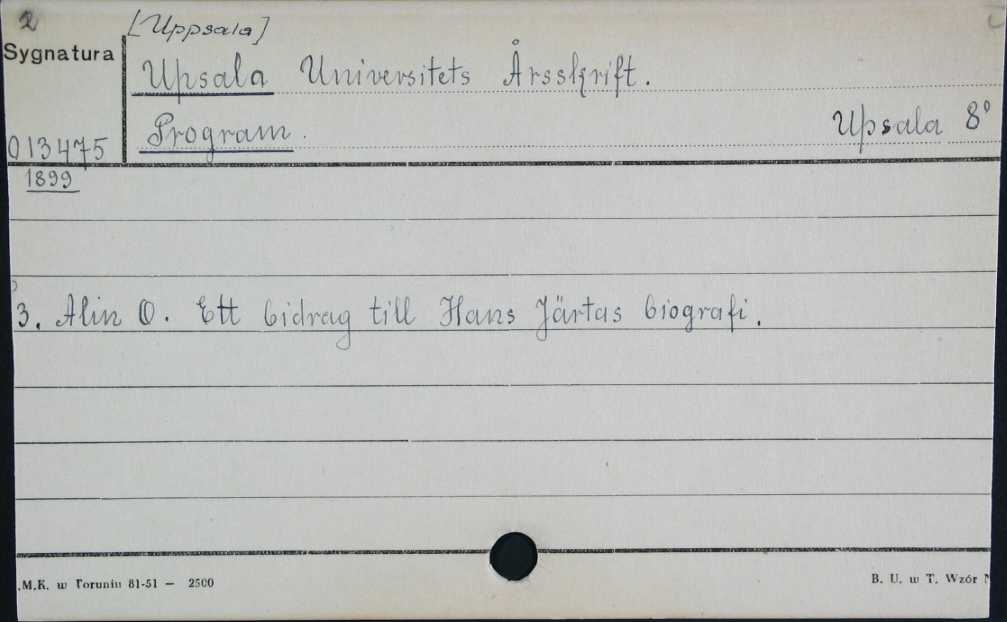 2
[Uppsala]
Sygnatura
Upsala Universitets Årsskrift.
Program.
Upsala 8°
013475
1899
3. Alin O. Ett bidrag till Hans Järtas biografi.
.M.K. w Toruniu 81-51 — 2500
B. U. w T. Wzór